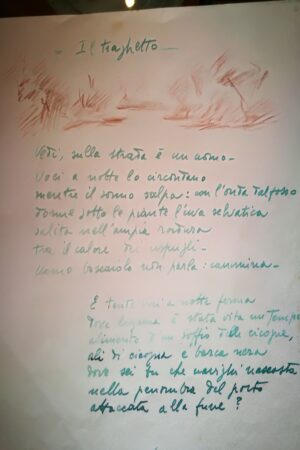 - Il traghetto -
Vedi, sulla strada è un uomo -
Voci a notte lo circondano
mentre il sonno salpa: con l'onda del fosso
dorme sotto le piante l'uva selvatica
salita nell'ampia
tra il calore dei cespugli -
Uomo boscaiolo non parla: cammina -
E tante a notte ferma
dove è stata vita un Tempo
alimento d'un soffio delle cicogne,
ali di cicogna e barca nera
dove sei tu che navighi nascosta
nella penombra del porto
attaccata alla fune?